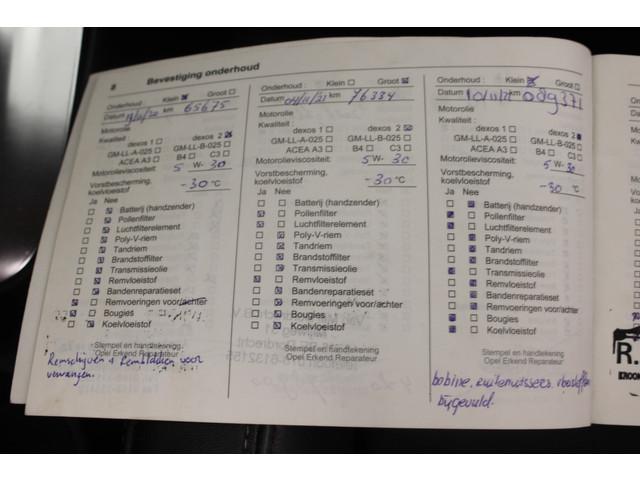 8 Bevestiging onderhoud
Onderhoud Klein ☒ Groot ☐
Datum km 65675
Motorolie
Kwaliteit :
dexos 1 ☐ dexos 2 ☒
GM-LL-A-025 ☐ GM-LL-B-025 ☐
ACEA A3 ☐ B4 ☐ C3 ☐
Motorolieviscositeit: 5 W- 30
Vorstbescherming,
koelvloeistof -30 °C
Ja Nee
Batterij (handzender)
Pollenfilter
Luchtfilterelement
Poly-V-riem
Tandriem
Brandstoffilter
Transmissieolie
Remvloeistof
Bandenreparatieset
Remvoeringen voor/achter
Bougies
Koelvloeistof
Stempel en handtekening
Opel Erkend Reparateur
Remschijven + Remblokken voor
vervangen.
Onderhoud : Klein ☐ Groot ☒
Datum 04/11/21 km 76334
Motorolie
Kwaliteit :
dexos 1 ☐ dexos 2 ☒
GM-LL-A-025 ☐ GM-LL-B-025 ☐
ACEA A3 ☐ B4 ☐ C3 ☐
Motorolieviscositeit: 5 W- 30
Vorstbescherming,
koelvloeistof -30 °C
Ja Nee
Batterij (handzender)
Pollenfilter
Luchtfilterelement
Poly-V-riem
Tandriem
Brandstoffilter
Transmissieolie
Remvloeistof
Bandenreparatieset
Remvoeringen voor/achter
Bougies
Koelvloeistof
Stempel en handtekening
Opel Erkend Reparateur
Onderhoud : Klein ☒ Groot ☐
Datum km 089371
Motorolie
Kwaliteit :
dexos 1 ☐ dexos 2 ☒
GM-LL-A-025 ☐ GM-LL-B-025 ☐
ACEA A3 ☐ B4 ☐ C3 ☐
Motorolieviscositeit: 5 W- 30
Vorstbescherming,
koelvloeistof -30 °C
Ja Nee
Batterij (handzender)
Pollenfilter
Luchtfilterelement
Poly-V-riem
Tandriem
Brandstoffilter
Transmissieolie
Remvloeistof
Bandenreparatieset
Remvoeringen voor/achter
Bougies
Koelvloeistof
Stempel en handtekening
Opel Erkend Reparateur
bobine, ruitenwissers,
bijgevuld.
R.